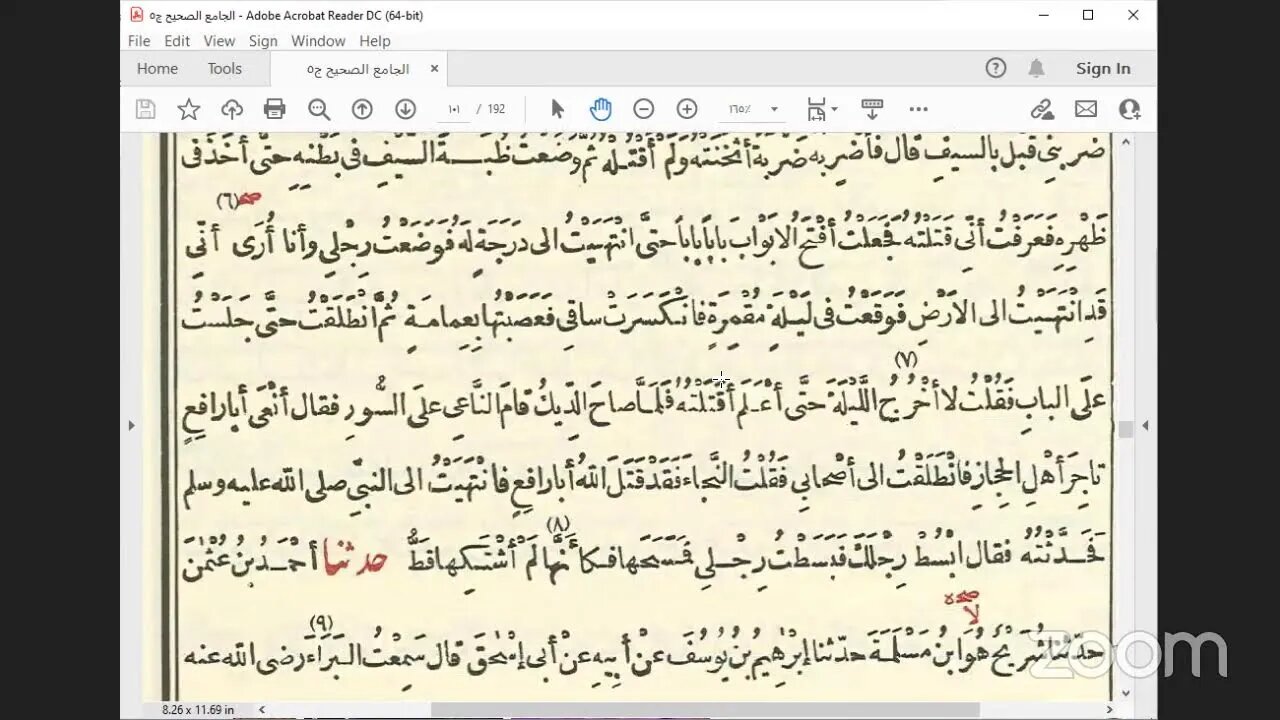 الجامع الصحيح ج٥ - Adobe Acrobat Reader DC (64-bit)
File Edit View Sign Window Help
Home Tools الجامع الصحيح ج٥ × Sign In
١٠١ / 192 ١٦٥٪
ضَرَبَنِي قَبْلُ بِالسَّيْفِ قَالَ فَأَضْرِبُهُ ضَرْبَةً أَثْخَنَتْهُ وَلَمْ أَقْتُلْهُ ثُمَّ وَضَعْتُ ظُبَةَ السَّيْفِ فِي بَطْنِهِ حَتَّى أَخَذَ فِي
(٦)
ظَهْرِهِ فَعَرَفْتُ أَنِّي قَتَلْتُهُ فَجَعَلْتُ أَفْتَحُ الْأَبْوَابَ بَابًا بَابًا حَتَّى انْتَهَيْتُ إِلَى دَرَجَةٍ لَهُ فَوَضَعْتُ رِجْلِي وَأَنَا أُرَى أَنِّي
قَدِ انْتَهَيْتُ إِلَى الْأَرْضِ فَوَقَعْتُ فِي لَيْلَةٍ مُقْمِرَةٍ فَانْكَسَرَتْ سَاقِي فَعَصَبْتُهَا بِعِمَامَةٍ ثُمَّ انْطَلَقْتُ حَتَّى جَلَسْتُ
(٧)
عَلَى الْبَابِ فَقُلْتُ لَا أَخْرُجُ اللَّيْلَةَ حَتَّى أَعْلَمَ أَقَتَلْتُهُ فَلَمَّا صَاحَ الدِّيكُ قَامَ النَّاعِي عَلَى السُّورِ فَقَالَ أَنْعَى أَبَا رَافِعٍ
تَاجِرَ أَهْلِ الْحِجَازِ فَانْطَلَقْتُ إِلَى أَصْحَابِي فَقُلْتُ النَّجَاءَ فَقَدْ قَتَلَ اللَّهُ أَبَا رَافِعٍ فَانْتَهَيْتُ إِلَى النَّبِيِّ صلى الله عليه وسلم
(٨)
فَحَدَّثْتُهُ فَقَالَ ابْسُطْ رِجْلَكَ فَبَسَطْتُ رِجْلِي فَمَسَحَهَا فَكَأَنَّهَا لَمْ أَشْتَكِهَا قَطُّ حدثنا أَحْمَدُ بْنُ عُثْمٰنَ
لا
(٩)
حَدَّثَنَا شُرَيْحٌ هُوَ ابْنُ مَسْلَمَةَ حدّثنا إِبْرٰهِيمُ بْنُ يُوسُفَ عَنْ أَبِيهِ عَنْ أَبِي إِسْحٰقَ قَالَ سَمِعْتُ الْبَرَاءَ رضى الله عنه
zoom
8.26 x 11.69 in